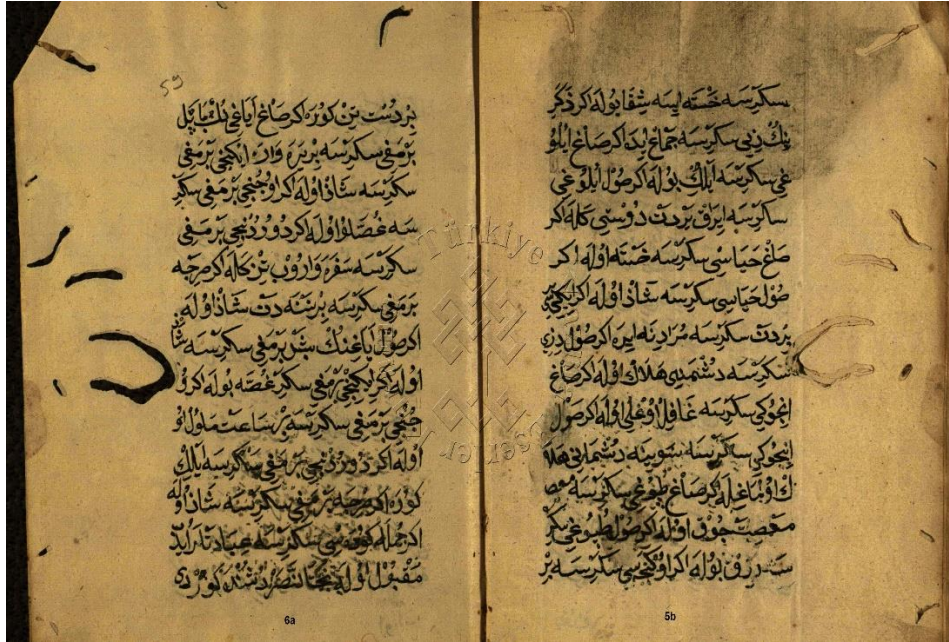 سكرسه خسته ايسه شفا بوله اكر ذكر
نك ديبى سكرسه جماع ايده اكر صاغ ايلو
غى سكرسه ايلك بوله اكر صول ايلوغى
سكرسه ايراق يردن دوستى كله اكر
صاغ خياسى سكرسه خسته اوله اكر
صول خياسى سكرسه شاذ اوله اكر
بردن سكرسه مرادنه ايره اكر صول ديزى
سكرسه دشمنى هلاك اوله اكر صاغ
انجوكى سكرسه غافل اوغلى اوله اكر صول
انجوكى سكرسه سوينه دشمانى هلا
ك اكر صاغ طپوغى سكرسه
جوق اوله اكر صول طپوغى سكر
سه رزق بوله اكر اوكنجسى سكرسه بر
5b
59
بر دست تن كوره اكر صاغ اياغى نك
برمغى سكرسه بر يره واره ايكنجى برمغى
سكرسه شاذ اوله اكر اوجنجى برمغى سكر
سه غصه لو اوله اكر دوردنجى برمغى
سكرسه سفره واروب تن كله اكر صرجه
برمغى سكرسه بر نسنه دن شاذ اوله
اكر صول اياغنك بش برمغى سكرسه شا
اوله اكر ايكنجى برمغى سكر غصه بوله اكر او
جنجى برمغى سكرسه بر ساعت ملول
اوله اكر دوردنجى برمغى سكرسه ايلك
كوره اكر صرجه برمغى سكرسه شاذ اوله
اكر جمله سكرسه عبادتلر ايد
مقبول اوله
6a
Türkiye